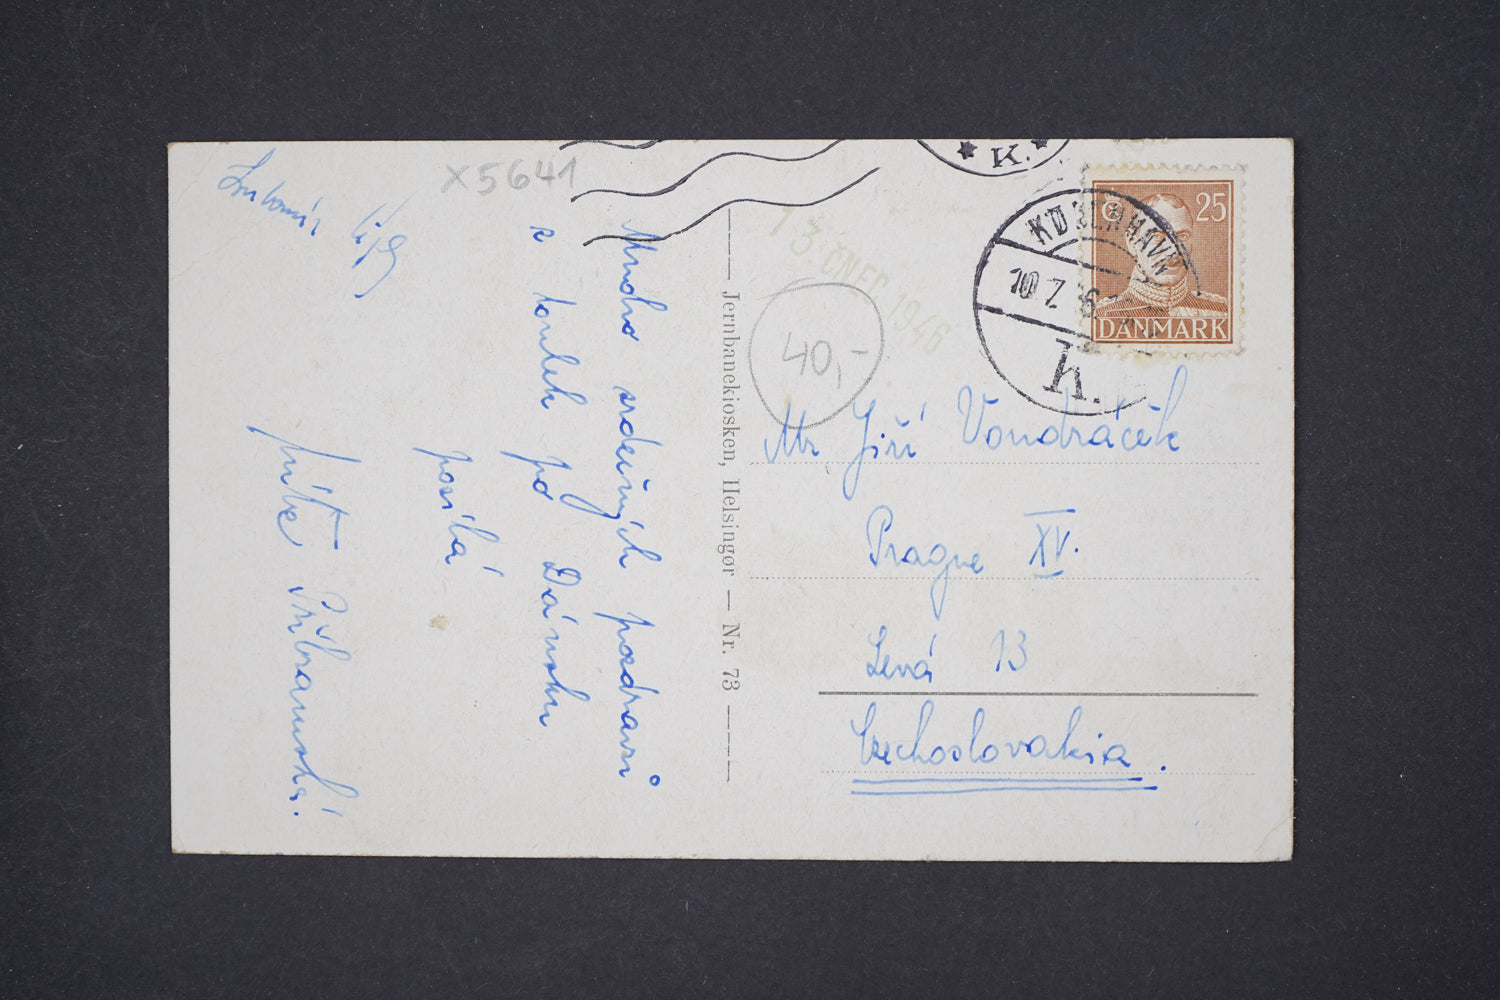 X5641
Mnoho srdečných pozdravů
z toulek po Dánsku
posílá
Příbramská.
Lubomír
Jernbanekiosken, Helsingør — Nr. 73
13 ČNEC 1946
40,-
K.
KØBENHAVN
10 7
K.
25
DANMARK
Mr Jiří Vondráček
Prague XV.
Levá 13
Czechoslovakia.